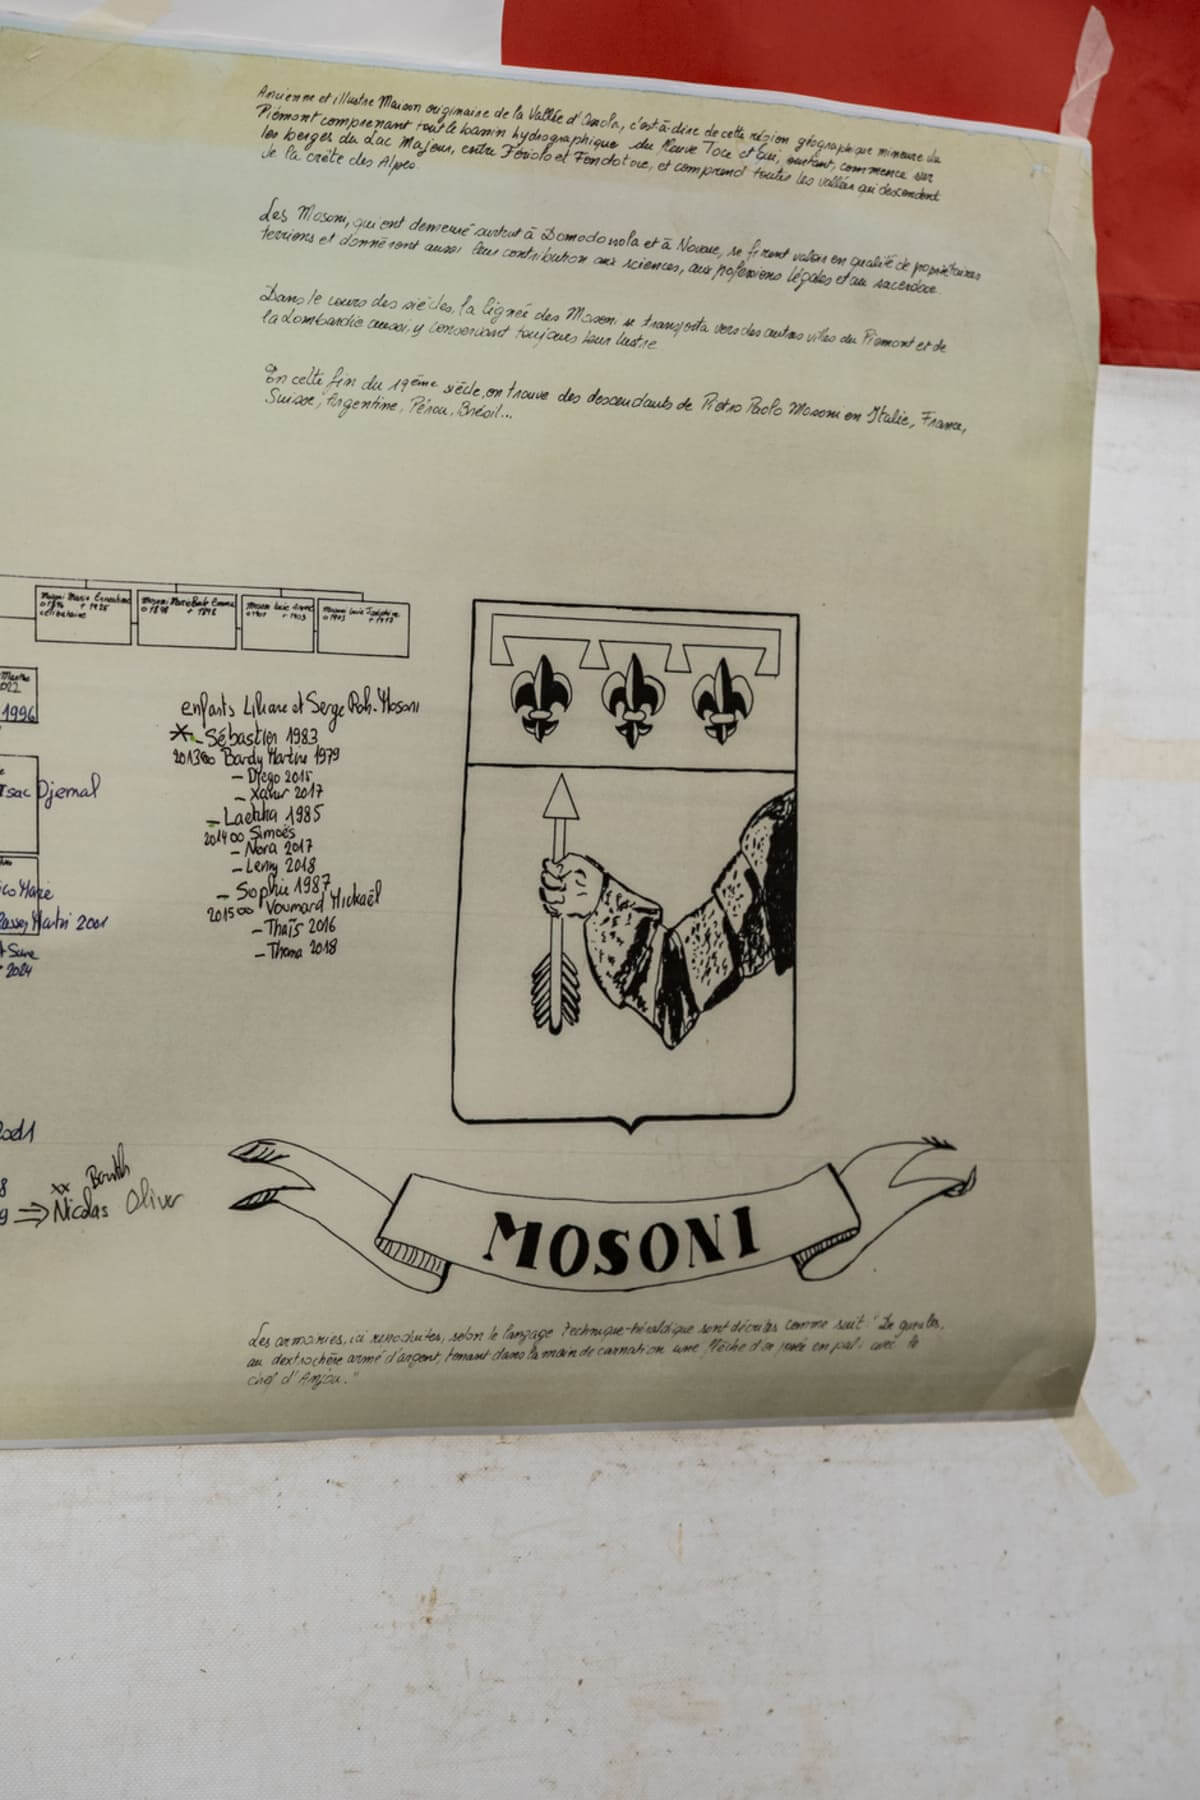 Ancienne et illustre Maison originaire de la Vallée d'Ossola, c'est-à-dire de cette région géographique mineure du
Piémont comprenant tout le bassin hydrographique du fleuve Toce et qui, partant, commence sur
les berges du Lac Majeur, entre Fériolo et Fondotoce, et comprend toutes les vallées qui descendent
de la crète des Alpes
Les Mosoni, qui ont demeuré surtout à Domodossola et à Novare, se firent valoir en qualité de propriétaires
terriens et donnèrent aussi leur contribution aux sciences, aux professions légales et au sacerdoce.
Dans le cours des siècles, la lignée des Mosoni se transporta vers des autres villes du Piémont et de
la Lombardie aussi, y conservant toujours leur lustre
En cette fin du 19ème siècle, on trouve des descendants de Pietro Paolo Mosoni en Italie, France,
Suisse, Argentine, Pérou, Brésil...
Mosoni Marie Ernestine
o 1894 + 1925
célibataire
Mosoni Marie Emma
o 1898 + 1898
Mosoni Lucie
o 1901 + 1903
Mosoni Lucie Joséphine
o 1903
2022
1996
enfants Liliane et Serge Roh-Mosoni
* - Sébastien 1983
2013 oo Bardy Martine 1979
- Diego 2015
- Xavier 2017
- Laetitia 1985
2014 oo Simoes
- Nora 2017
- Leny 2018
- Sophie 1987
2015 oo Voumard Mickaël
- Thaïs 2016
- Thoma 2018
Isac Djemal
Marie
2001
2024
8
xx
9 ⇒ Nicolas Oliver
MOSONI
Les armoiries, ici reproduites, selon le langage technique-héraldique sont décrites comme suit: "De gueules,
au dextrochère armé d'argent, tenant dans la main de carnation une flèche d'or posée en pal; avec le
chef d'Anjou."